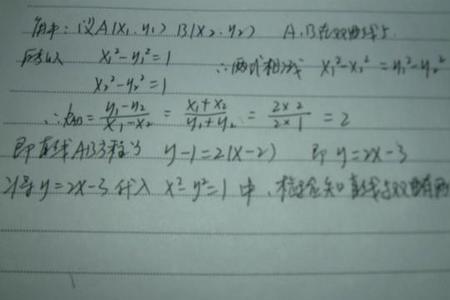 解：设A(x₁,y₁) B(x₂,y₂) A、B在双曲线上
x₁²-y₁²=1 ∴两式相减 x₁²-x₂²=y₁²-y₂²
x₂²-y₂²=1
∴k_AB=(y₁-y₂)/(x₁-x₂)=(x₁+x₂)/(y₁+y₂)=(2×2)/(2×1)=2
即直线AB方程为 y-1=2(x-2) 即 y=2x-3
将y=2x-3代入 x²-y²=1 中，检验知直线与双曲线有两